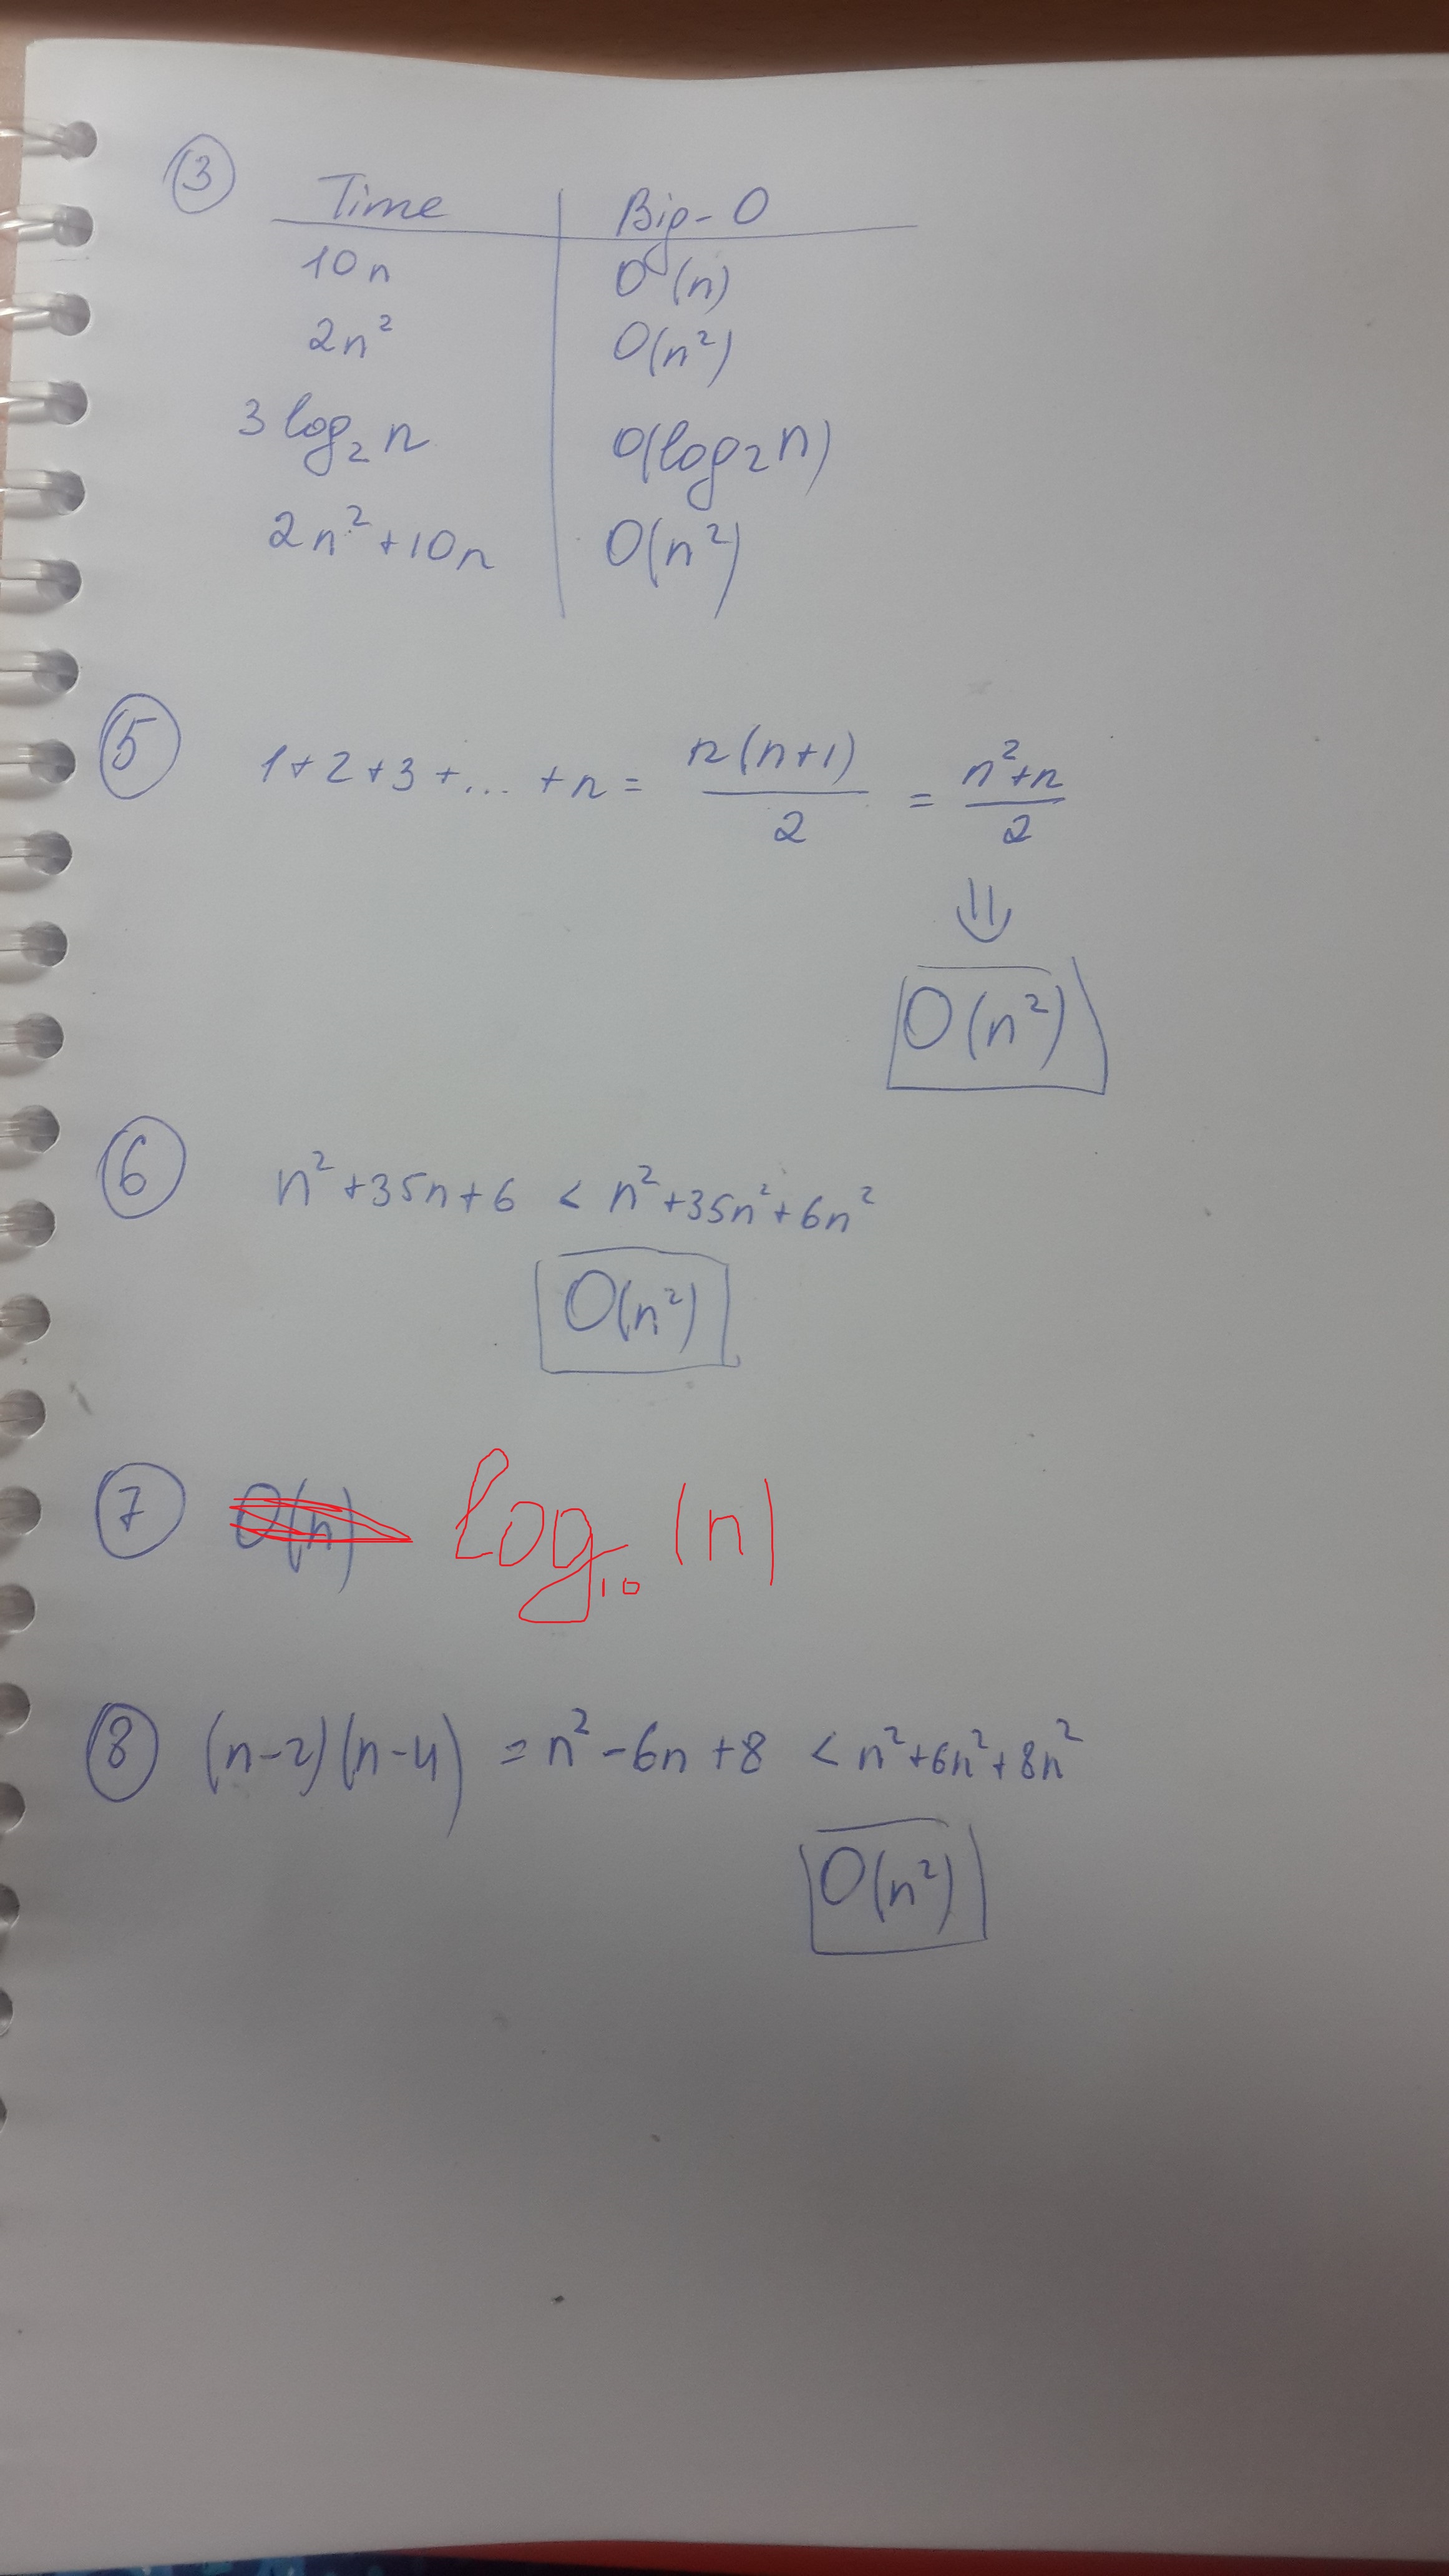 3
Time Big-O
10n O(n)
2n² O(n²)
3 log₂ n O(log₂ n)
2n² + 10n O(n²)
5 1+2+3+... +n = n(n+1)/2 = (n²+n)/2
⇓
O(n²)
6 n²+35n+6 < n²+35n²+6n²
O(n²)
7 O(n) log₁₀ (n)
8 (n-2)(n-4) = n²-6n+8 < n²+6n²+8n²
O(n²)